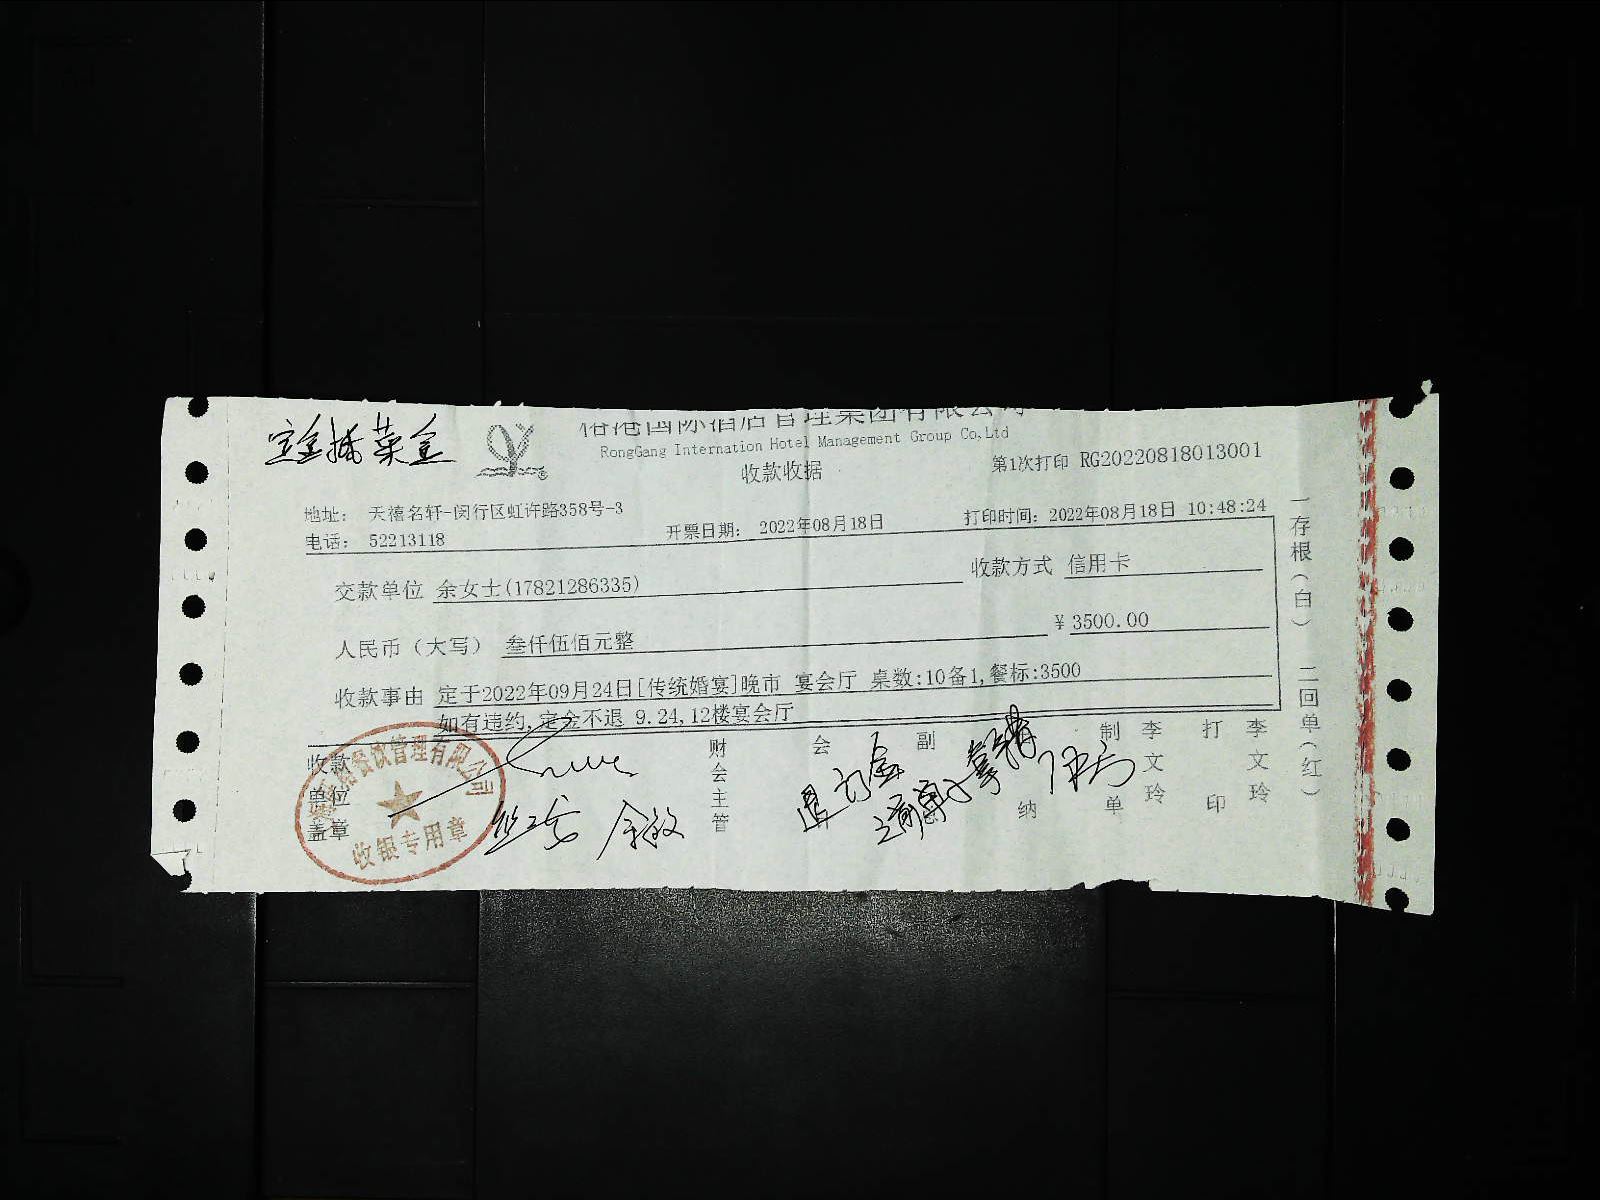 定金抵菜金
国际酒店管理集团有限公司
RongGang Internation Hotel Management Group Co,Ltd
收款收据
第1次打印 RG20220818013001
地址: 天禧名轩-闵行区虹许路358号-3
电话: 52213118
开票日期: 2022年08月18日
打印时间: 2022年08月18日 10:48:24
交款单位 余女士(17821286335)
收款方式 信用卡
人民币（大写） 叁仟伍佰元整
¥ 3500.00
收款事由 定于2022年09月24日[传统婚宴]晚市 宴会厅 桌数:10备1,餐标:3500
如有违约,定金不退 9.24,12楼宴会厅
收款单位盖章
餐饮管理有限公司
收银专用章
余敏
财会主管
会
副
纳
制单
李文玲
打印
李文玲
一存根(白) 二回单(红)